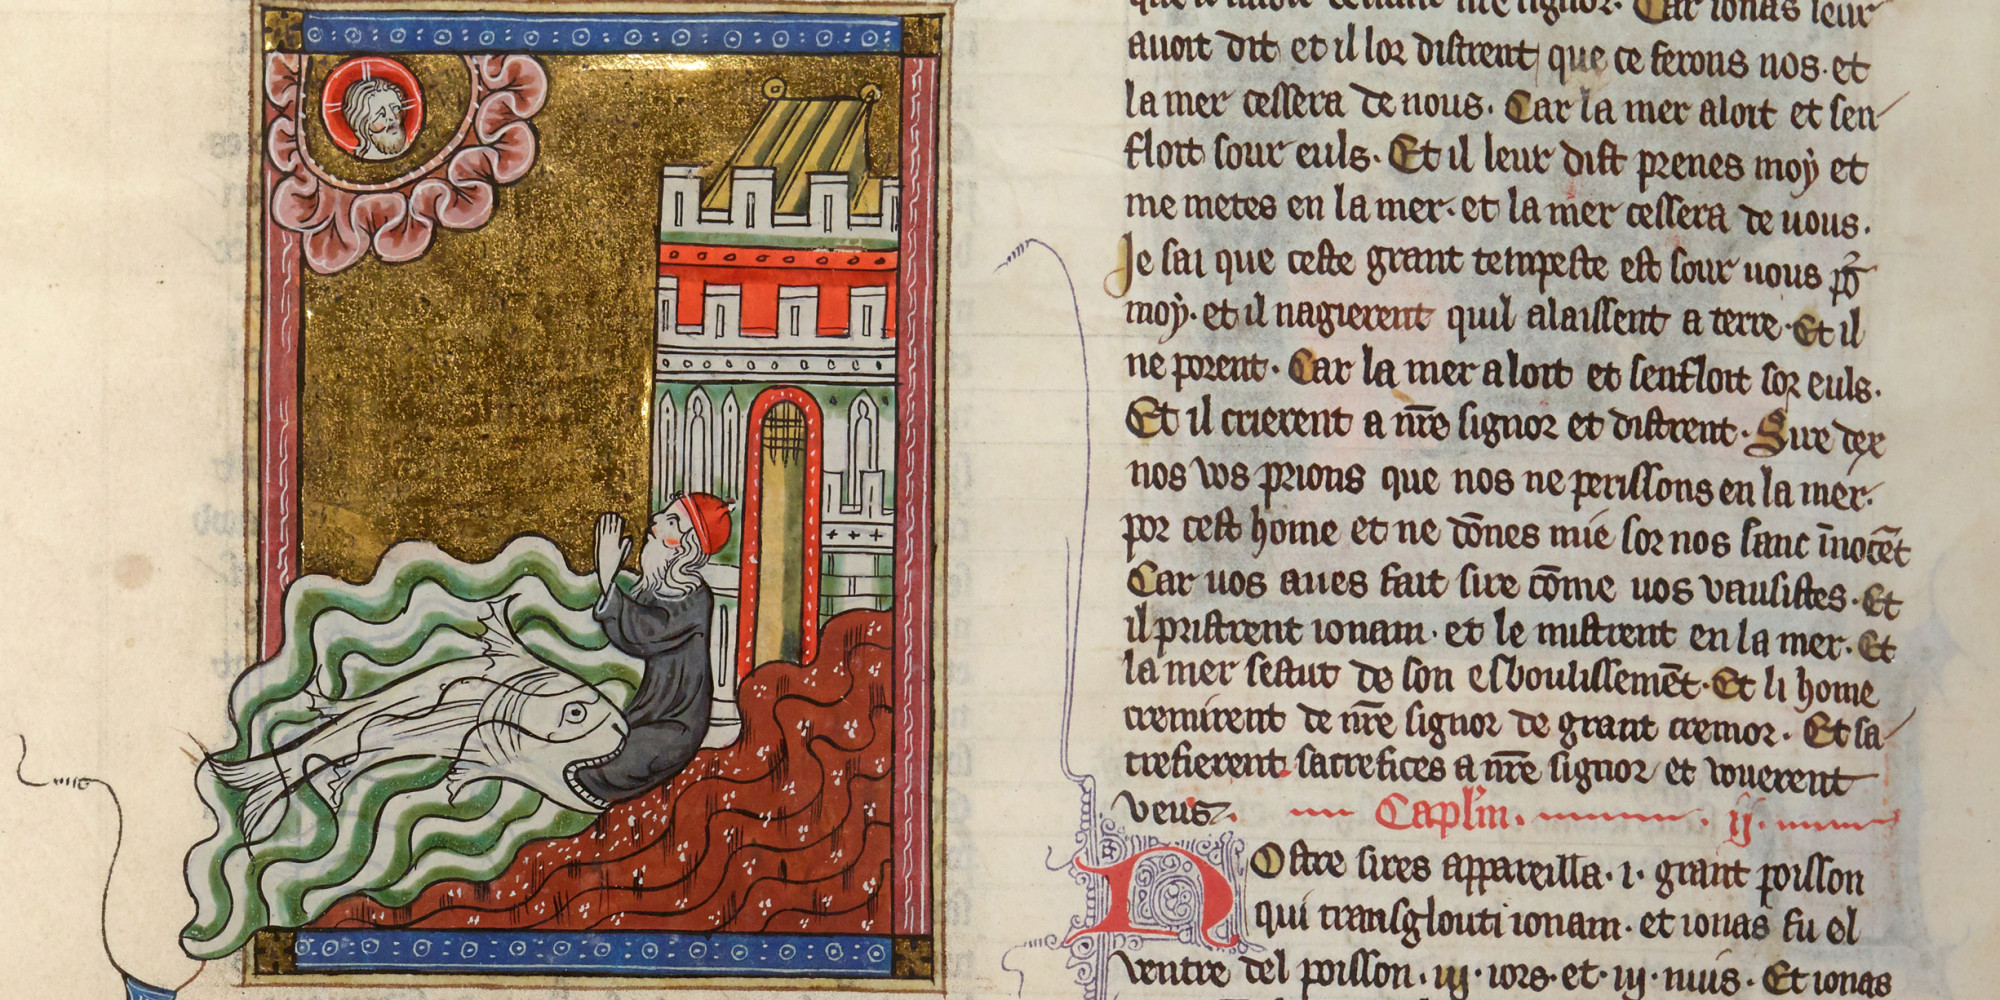 que il auoit deuant nre signor. Car ionas leur
auoit dit et il lor distrent que ce ferons nos. et
la mer cessera de nous. Car la mer aloit et sen
floit sour euls. Et il leur dist prenes moy et
me metes en la mer. et la mer cessera de uous.
Je sai que ceste grant tempeste est sour uous por
moy. et il nagierent quil alaissent a terre. Et il
ne porent. Car la mer aloit et senfloit sor euls.
Et il crierent a nr̄e signor et distrent. Sire dex
nos vos prions que nos ne perissons en la mer.
por cest home et ne dōnes mie sor nos sanc īnocēt
Car uos aues fait sire cōme uos vausistes. Et
il pristrent ionam. et le mistrent en la mer. Et
la mer sestut de son esboulissemēt. Et li home
cremirent de nr̄e signor de grant cremor. Et sa
crefierent sacrefices a nr̄e signor et vouerent
veus. Capl'm. ij.
NOstre sires appareilla .i. grant poisson
qui transglouti ionam. et ionas fu el
ventre del poisson .iij. iors. et .iij. nuis. Et ionas